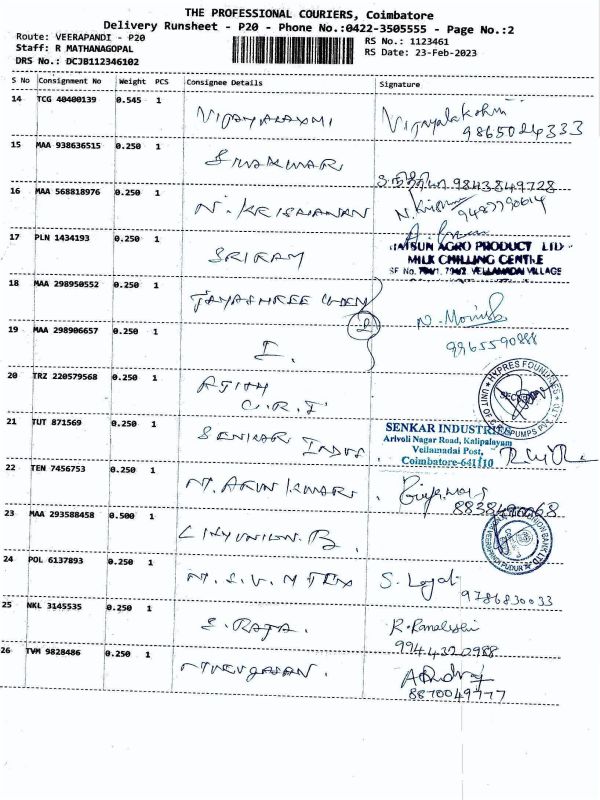 THE PROFESSIONAL COURIERS, Coimbatore
Delivery Runsheet - P20 - Phone No.:0422-3505555 - Page No.:2
Route: VEERAPANDI - P20
Staff: R MATHANAGOPAL
DRS No.: DCJB112346102
RS No.: 1123461
RS Date: 23-Feb-2023
S No Consignment No Weight PCS Consignee Details Signature
14 TCG 40400139 0.545 1
VIJAYALAXMI Vijayalakshmi
9865024333
15 MAA 938636515 0.250 1
SIVAKUMAR
9843849728
16 MAA 568818976 0.250 1
N. KRISHNANAN N. Krishna
17 PLN 1434193 0.250 1
SRIRAM
AGRO PRODUCT LTD
MILK CHILLING CENTRE
SF No. 794/1, 794/2 VELLAMADAI VILLAGE
18 MAA 298950552 0.250 1
JAYASHREE
2
19 MAA 298906657 0.250 1
I.
9965590888
20 TRZ 220579568 0.250 1
AJITH
C.R.I
HYPRES FOUNDRIES
UNIT OF
PUMPS
21 TUT 871569 0.250 1
SENKAR INDUS
SENKAR INDUSTRIES
Arivoli Nagar Road, Kalipalayam
Vellamadai Post,
Coimbatore-641110
22 TEN 7456753 0.250 1
M. ARUN KUMAR
23 MAA 293588458 0.500 1
CITY UNION. B.
UNION BANK LTD
24 POL 6137893 0.250 1
M.S.V.M TEX
9786830033
25 NKL 3145535 0.250 1
S. RAJA.
9944320988
26 TVM 9828486 0.250 1
MURUGASAN.
8870049777